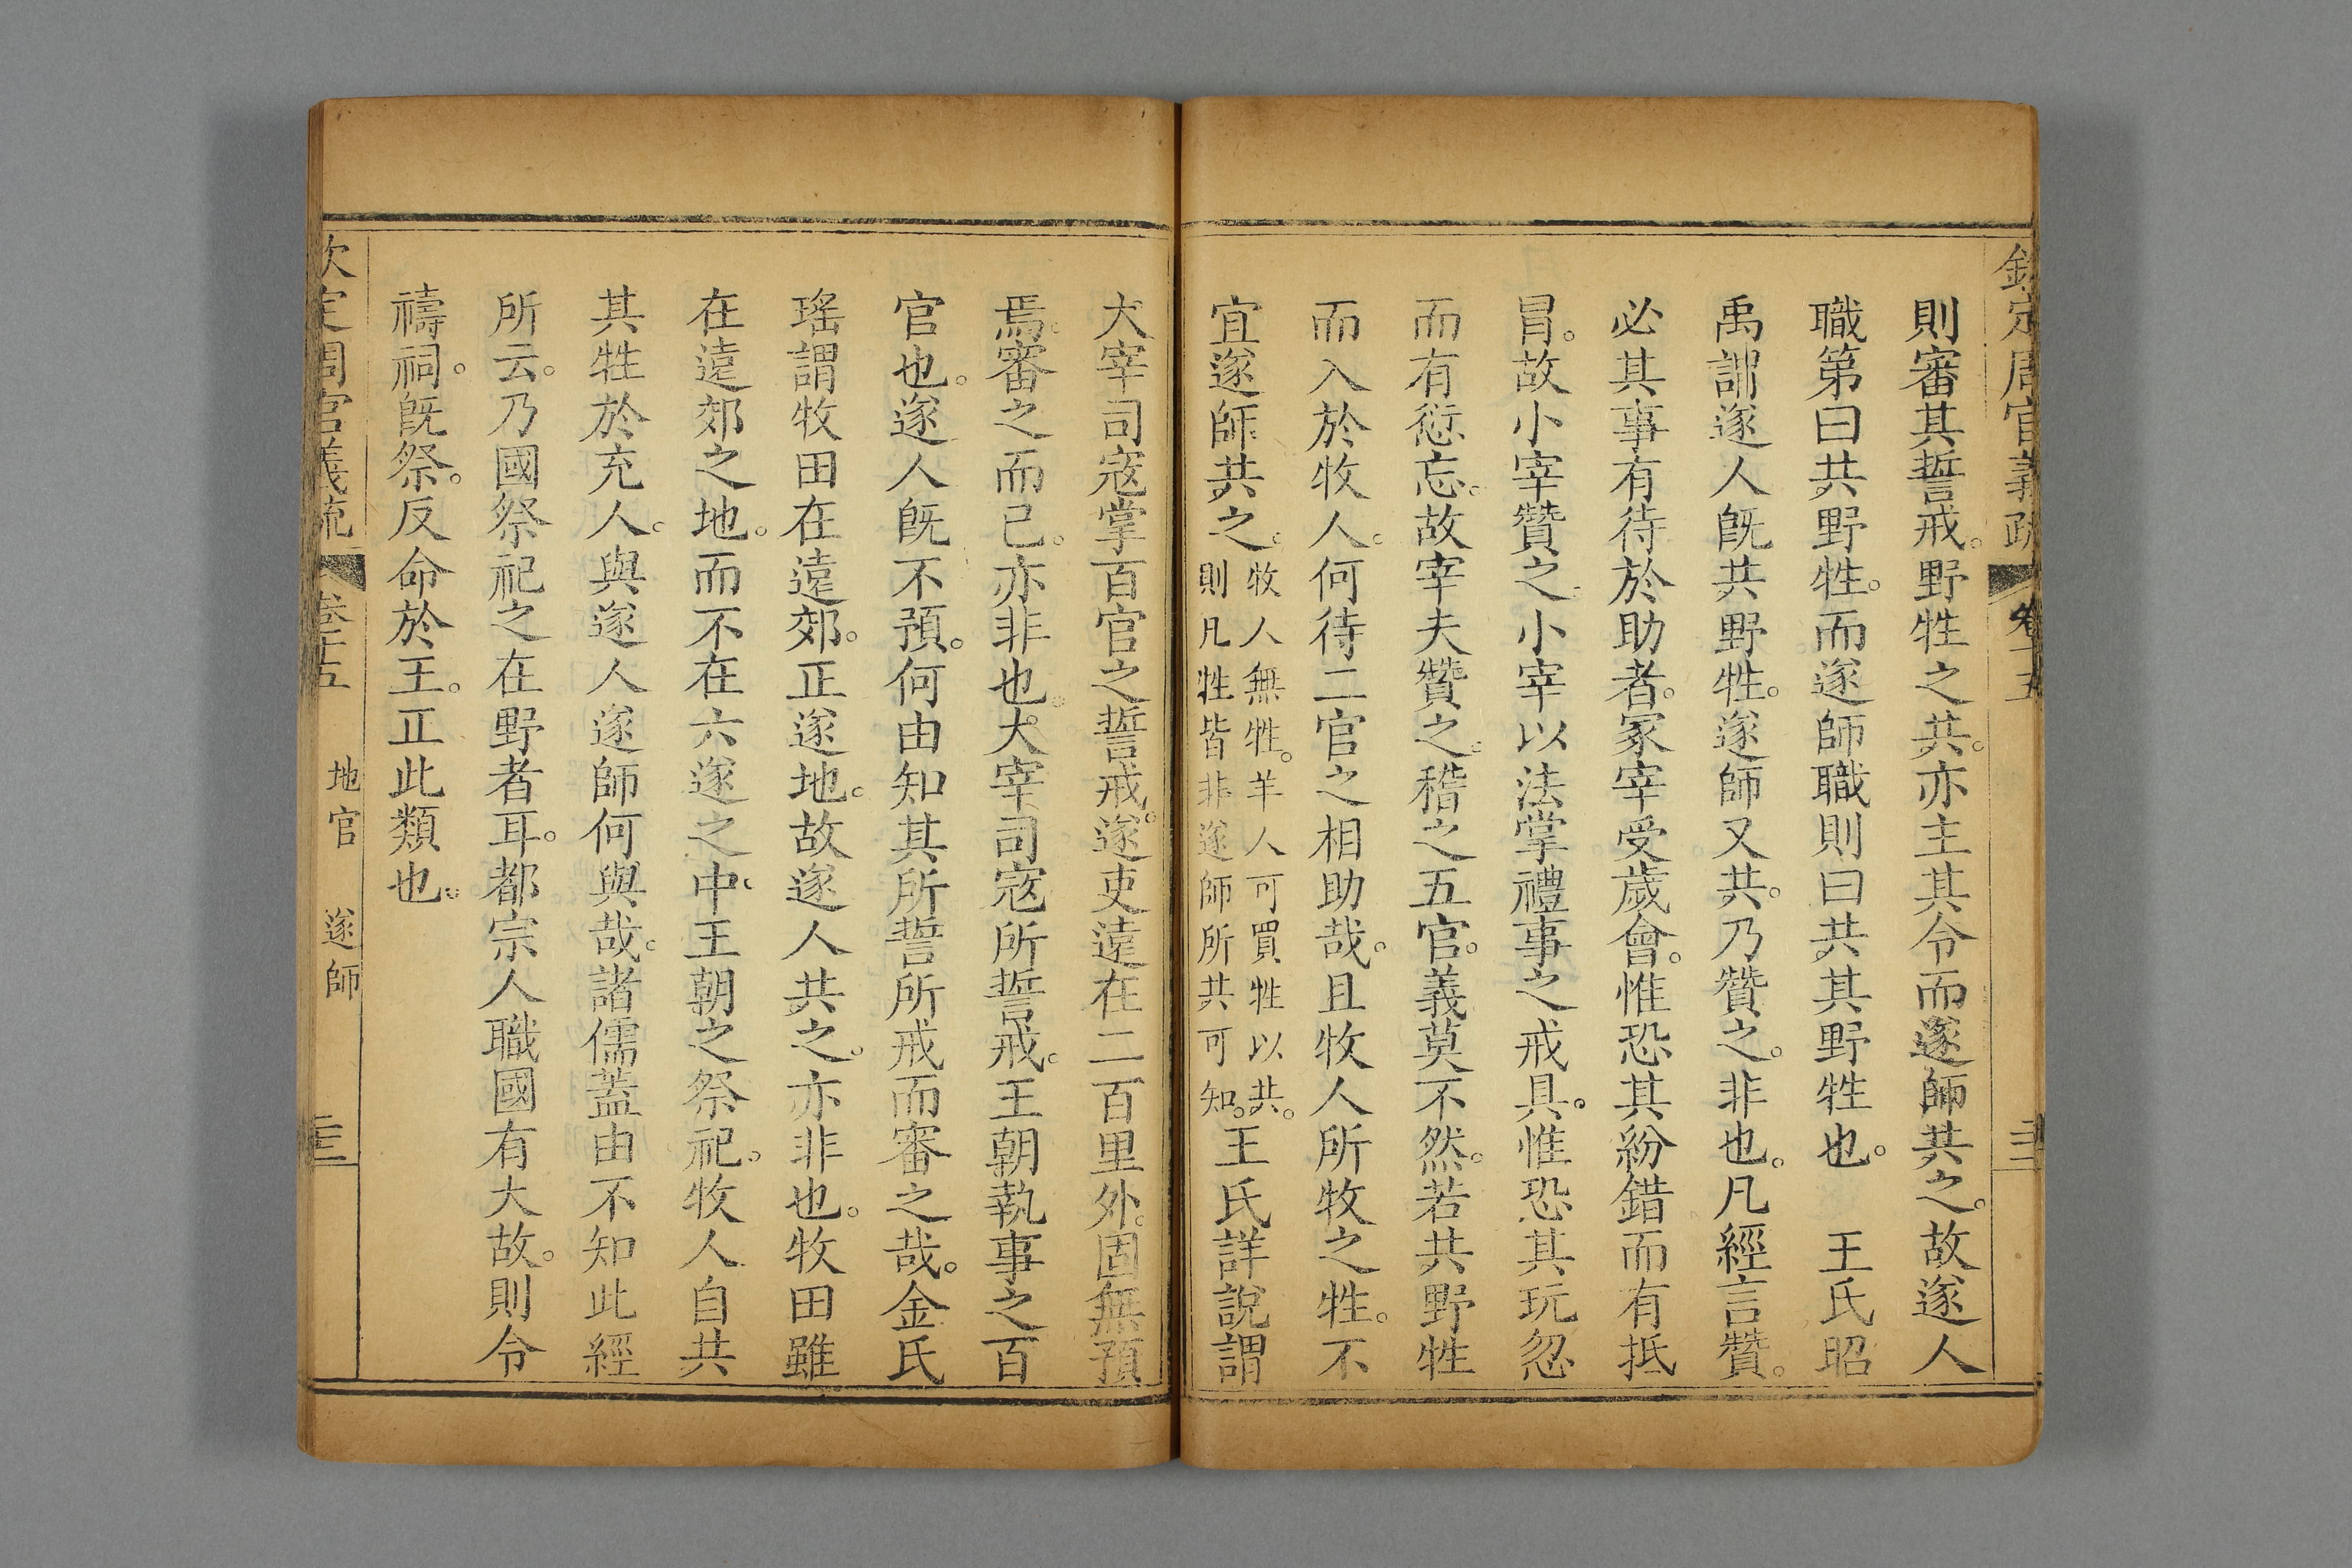 欽定周官義疏 卷十五
則審其誓戒。野牲之共。亦主其令而遂師共之。故遂人
職第曰共野牲。而遂師職則曰共其野牲也。 王氏昭
禹謂遂人既共野牲。遂師又共。乃贊之。非也。凡經言贊。
必其事有待於助者。冢宰受歲會。惟恐其紛錯而有抵
冒。故小宰贊之。小宰以法掌禮事之戒具。惟恐其玩忽
而有愆忘。故宰夫贊之。稽之五官。義莫不然。若共野牲
而入於牧人。何待二官之相助哉。且牧人所牧之牲。不
宜遂師共之。牧人無牲。羊人可買牲以共。則凡牲皆非遂師所共可知。王氏詳說謂
大宰司寇掌百官之誓戒。遂吏遠在二百里外。固無預
焉。審之而已。亦非也。大宰司寇所誓戒。王朝執事之百
官也。遂人既不預。何由知其所誓所戒而審之哉。金氏
瑤謂牧田在遠郊。正遂地。故遂人共之。亦非也。牧田雖
在遠郊之地。而不在六遂之中。王朝之祭祀。牧人自共
其牲於充人。與遂人遂師何與哉。諸儒蓋由不知此經
所云。乃國祭祀之在野者耳。都宗人職國有大故。則令
禱祠。既祭。反命於王。正此類也。
欽定周官義疏 卷十五 地官 遂師